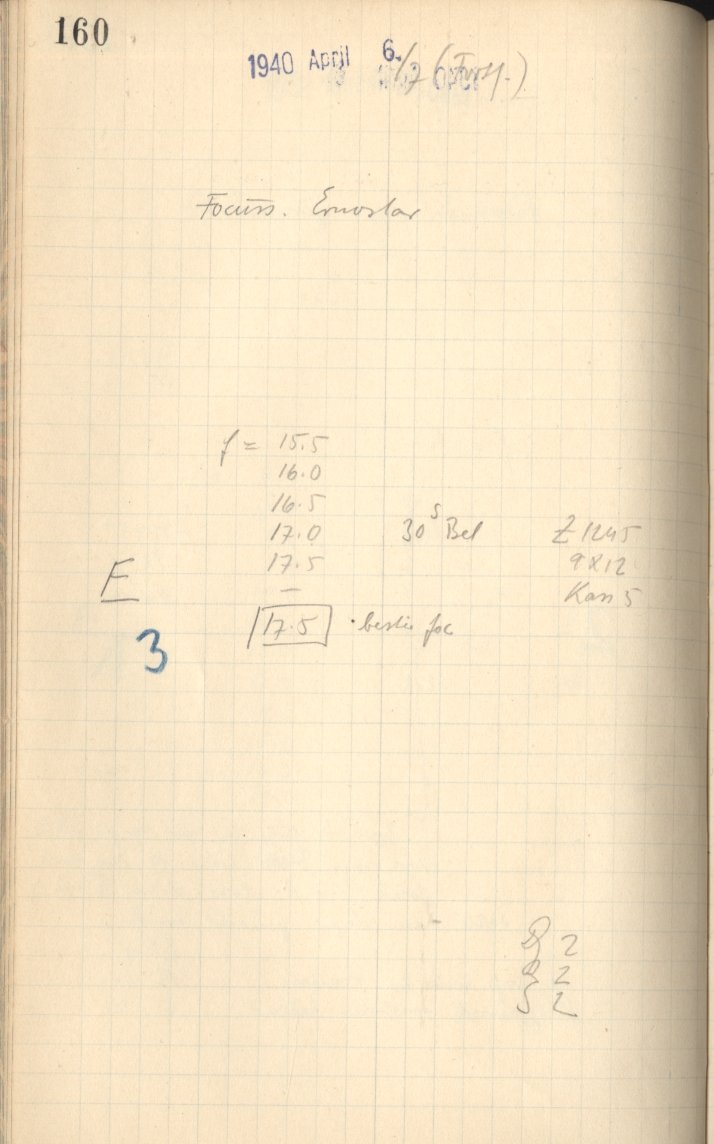 160
1940 April 6./7 (Forts.)
Focuss. Ernostar
f = 15.5
16.0
16.5
17.0 30ˢ Bel Z 1245
17.5 9x12
E — Kass 5
17.5 · bester foc
3
D 2
R 2
S 2